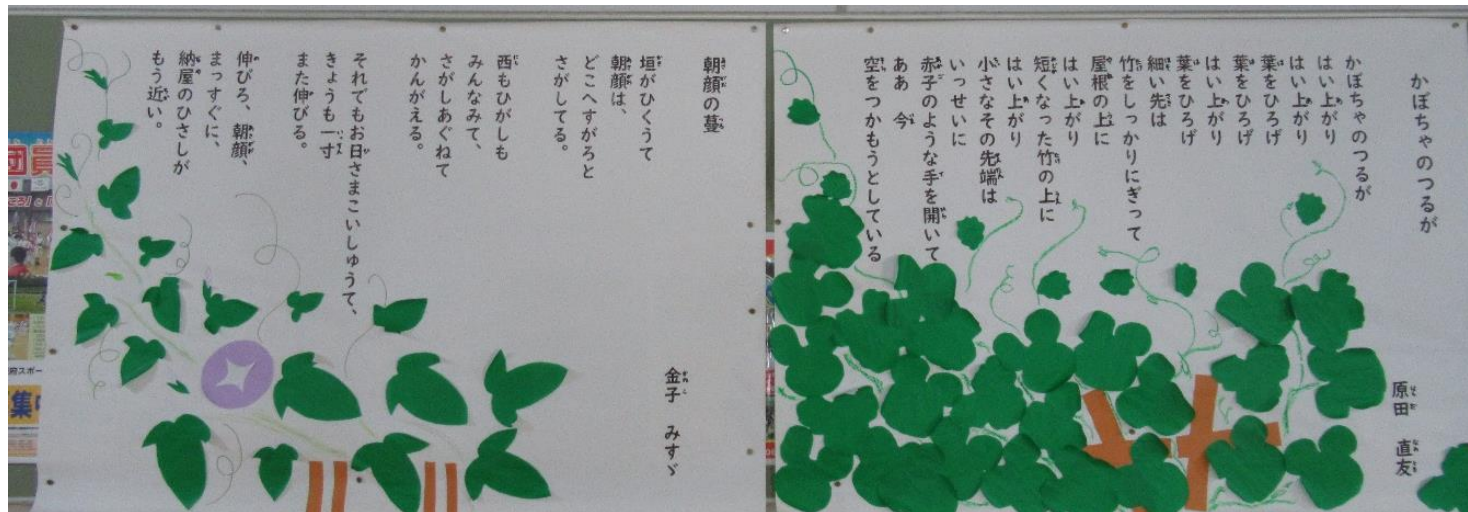 かぼちゃのつるが
原田 直友
かぼちゃのつるが
はい上がり
はい上がり
葉をひろげ
葉をひろげ
はい上がり
葉をひろげ
細い先は
竹をしっかりにぎって
屋根の上に
はい上がり
短くなった竹の上に
はい上がり
小さなその先端は
いっせいに
赤子のような手を開いて
ああ 今
空をつかもうとしている
朝顔の蔓
金子 みすゞ
垣がひくうて
朝顔は、
どこへすがろと
さがしてる。
西もひがしも
みんなみて、
さがしあぐねて
かんがえる。
それでもお日さまこいしゅうて、
きょうも一寸
また伸びる。
伸びろ、朝顔、
まっすぐに、
納屋のひさしが
もう近い。